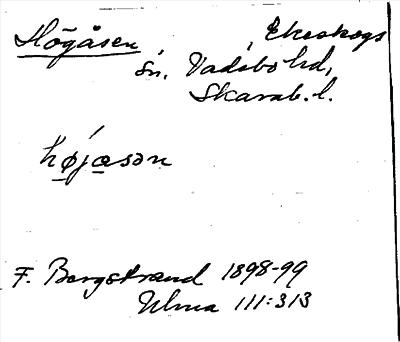 Högåsen, Ekeskogs
sn. Vadsbo hd,
Skarab. l.
højåsən
F. Bergstrand 1898-99
Ulma 111:313